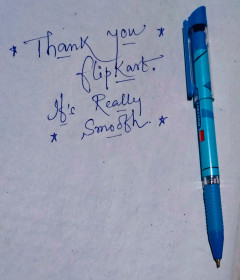 * Thank you
flipkart.
It's Really
* Smooth. *